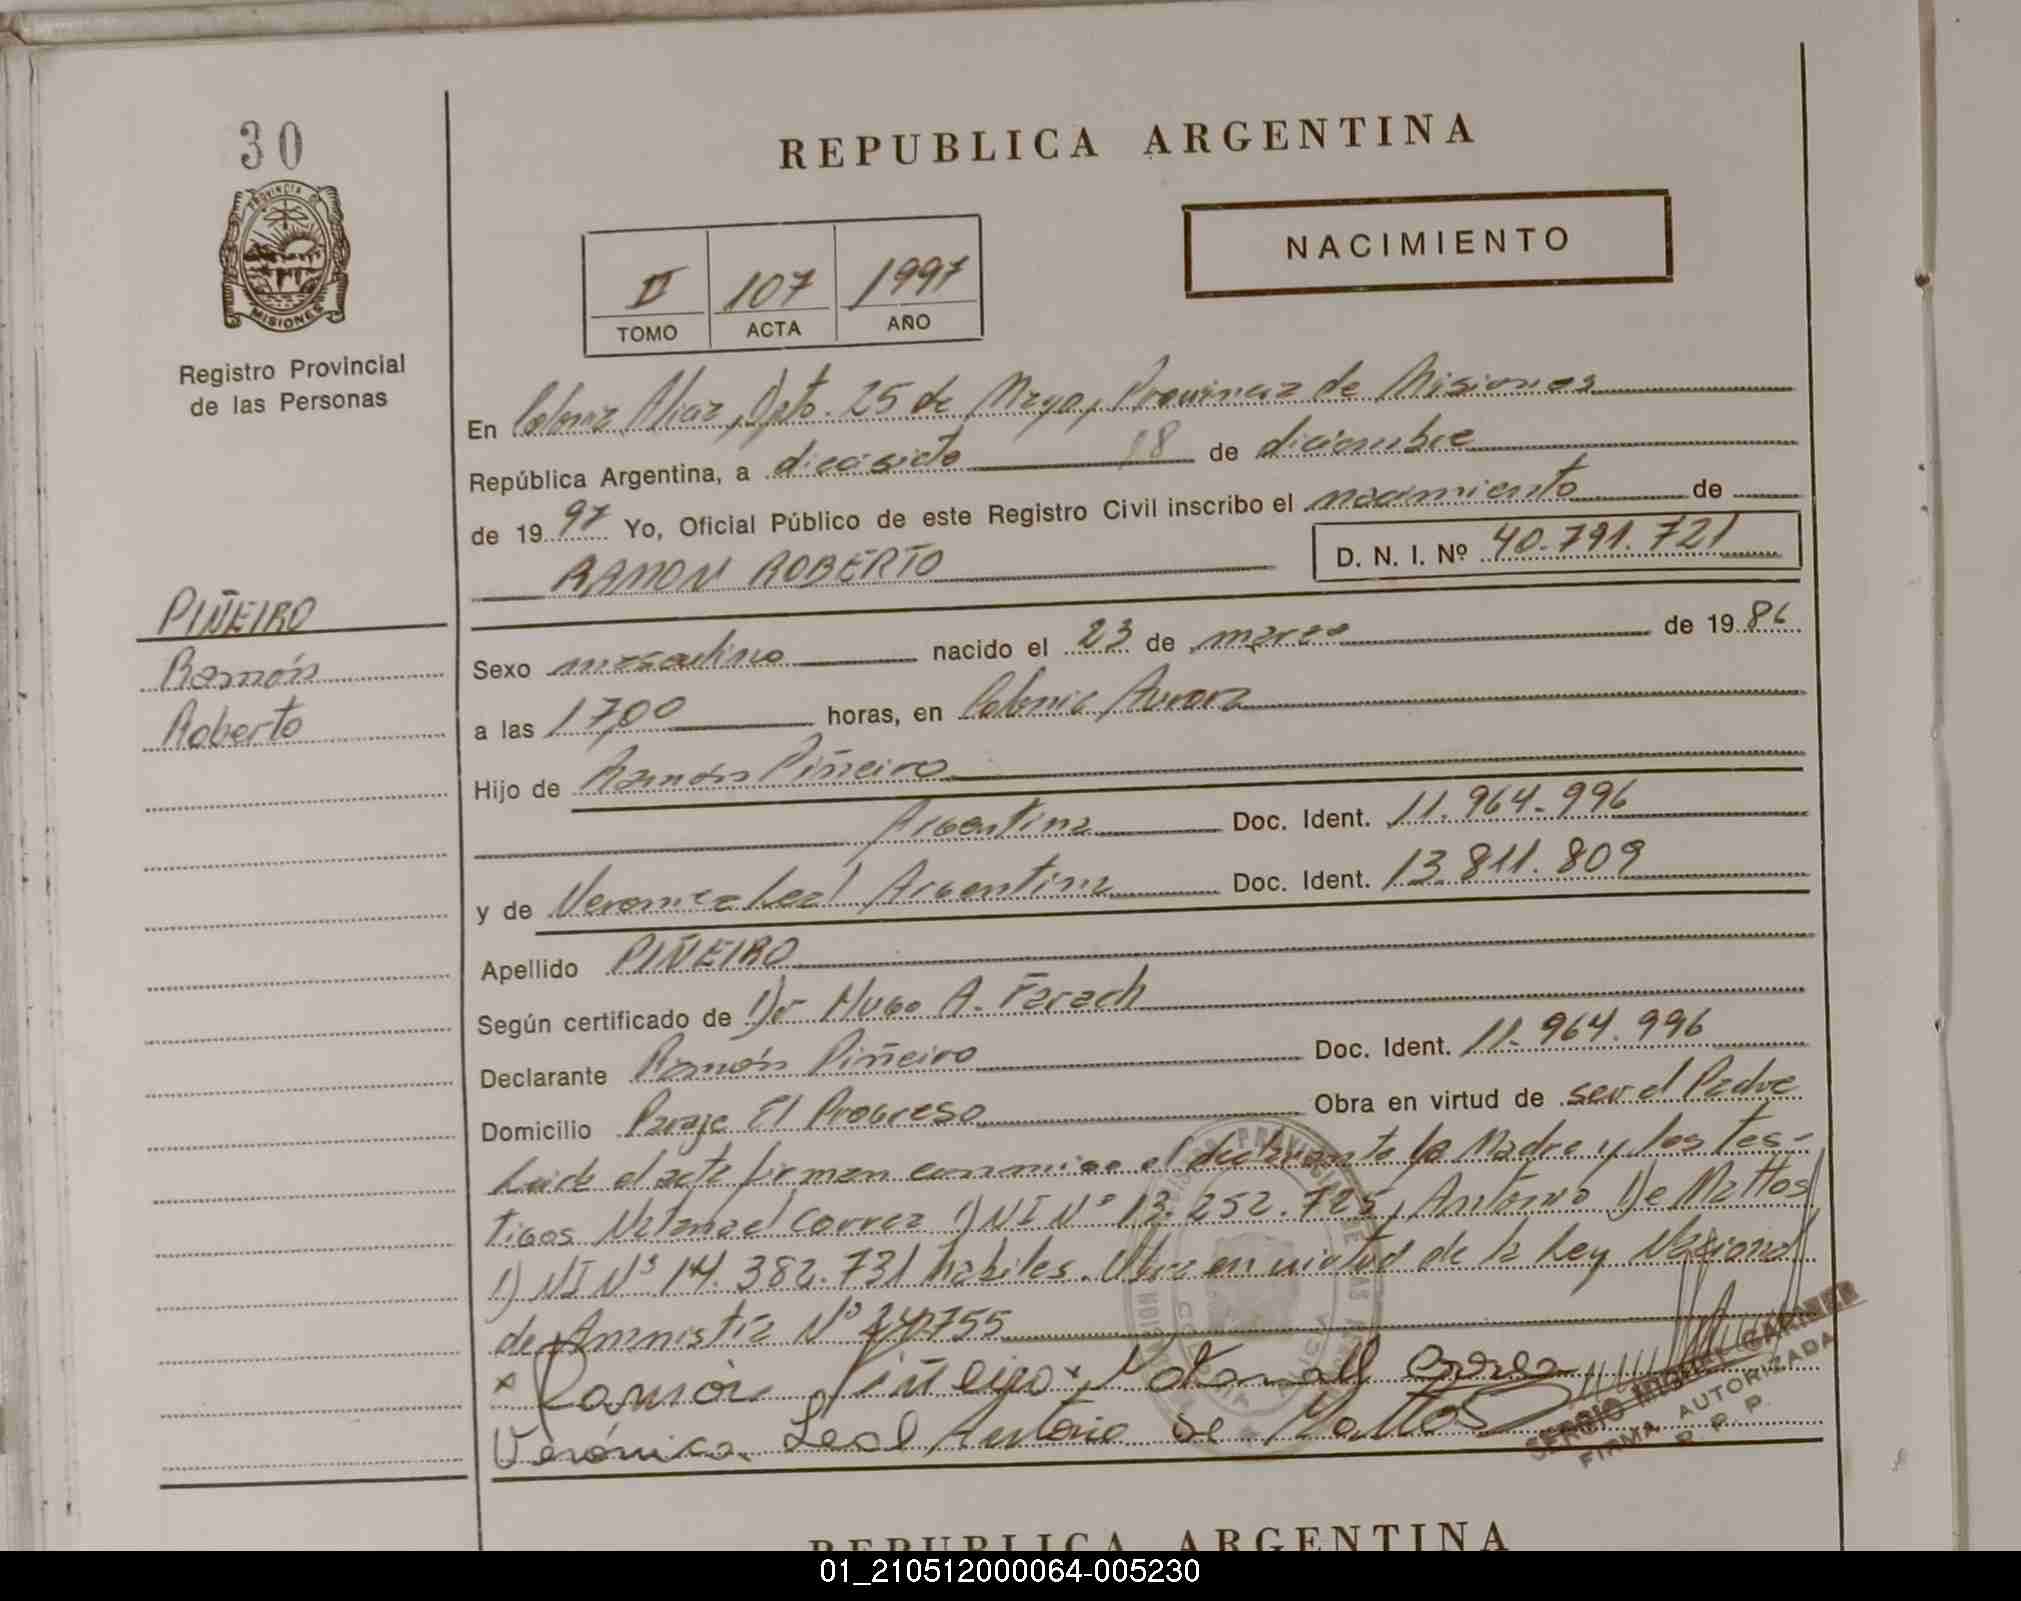 30
REPUBLICA ARGENTINA
PROVINCIA DE
MISIONES
Registro Provincial
de las Personas
NACIMIENTO
II 107 1997
TOMO ACTA AÑO
En Colonia Alicia, Dpto. 25 de Mayo, Provincia de Misiones
República Argentina, a diecisiete 18 de diciembre
de 1997 Yo, Oficial Público de este Registro Civil inscribo el nacimiento de
RAMON ROBERTO D. N. I. Nº 40.791.721
PIÑEIRO
Ramón
Roberto
Sexo masculino nacido el 23 de marzo de 1986
a las 1700 horas, en Colonia Aurora
Hijo de Ramón Piñeiro
Argentina Doc. Ident. 11.964.996
y de Veronica Leal Argentina Doc. Ident. 13.811.809
Apellido PIÑEIRO
Según certificado de Dr Hugo A. Farach
Declarante Ramón Piñeiro Doc. Ident. 11.964.996
Domicilio Paraje El Progreso Obra en virtud de ser el Padre
Leida el acta firman conmigo el declarante la Madre y los tes-
tigos Natanael Correa DNI Nº 13.252.725, Antonio De Mattos
DNI Nº 14.382.731 habiles. Obra en virtud de la Ley Nacional
de Amnistía Nº 24755
x Ramón Piñeiro x Natanael Correa
Verónica Leal Antonio De Mattos
SERGIO MIGUEL
FIRMA AUTORIZADA
R. P. P.
REPUBLICA ARGENTINA
01_210512000064-005230